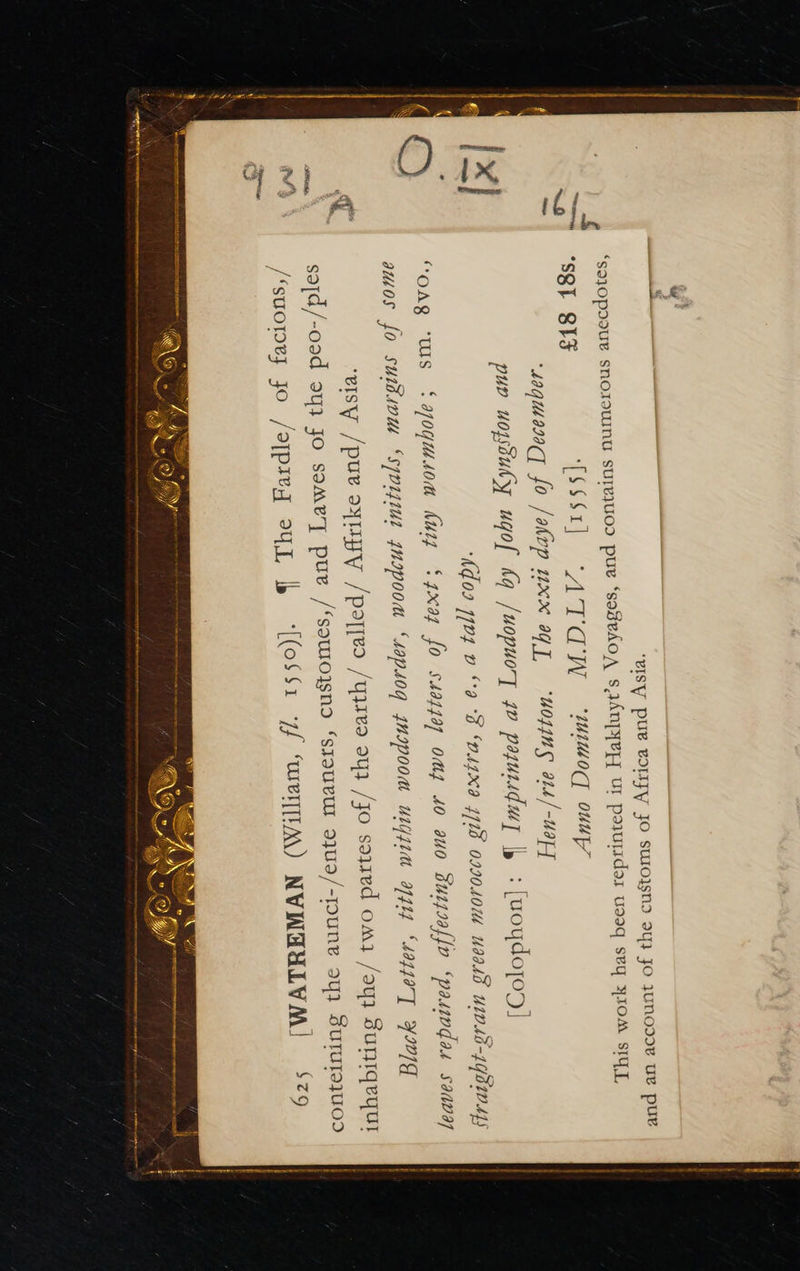 625 [WATREMAN (William, fl. 1550)]. ¶ The Fardle/ of facions,/
conteining the aunci-/ente maners, customes,/ and Lawes of the peo-/ples
inhabiting the/ two partes of/ the earth/ called/ Affrike and/ Asia.
Black Letter, title within woodcut border, woodcut initials, margins of some
leaves repaired, affecting one or two letters of text; tiny wormhole; sm. 8vo.,
straight-grain green morocco gilt extra, g. e., a tall copy.
[Colophon]: ¶ Imprinted at London/ by Jhon Kyngston and
Hen-/rie Sutton. The xxii daye/ of December.
Anno Domini. M.D.LV. [1555].
£18 18s.
This work has been reprinted in Hakluyt's Voyages, and contains numerous anecdotes,
and an account of the customs of Africa and Asia.
931
A
O.ix
16/